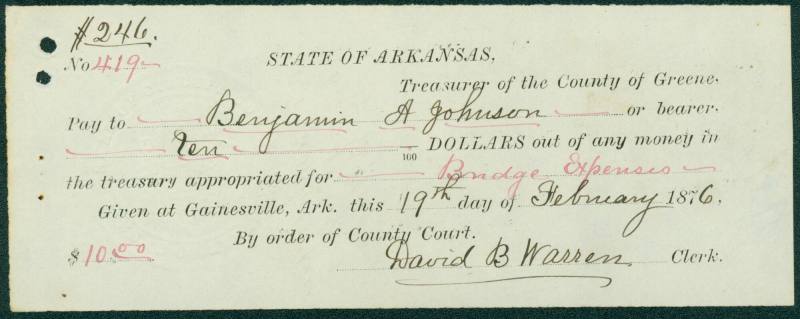 #246.
No 419
STATE OF ARKANSAS,
Treasurer of the County of Greene.
Pay to Benjamin A Johnson or bearer.
Ten 100 DOLLARS out of any money in
the treasury appropriated for Bridge Expenses
Given at Gainesville, Ark. this 19th day of February 1876,
By order of County Court.
$10.00 David B Warren Clerk.